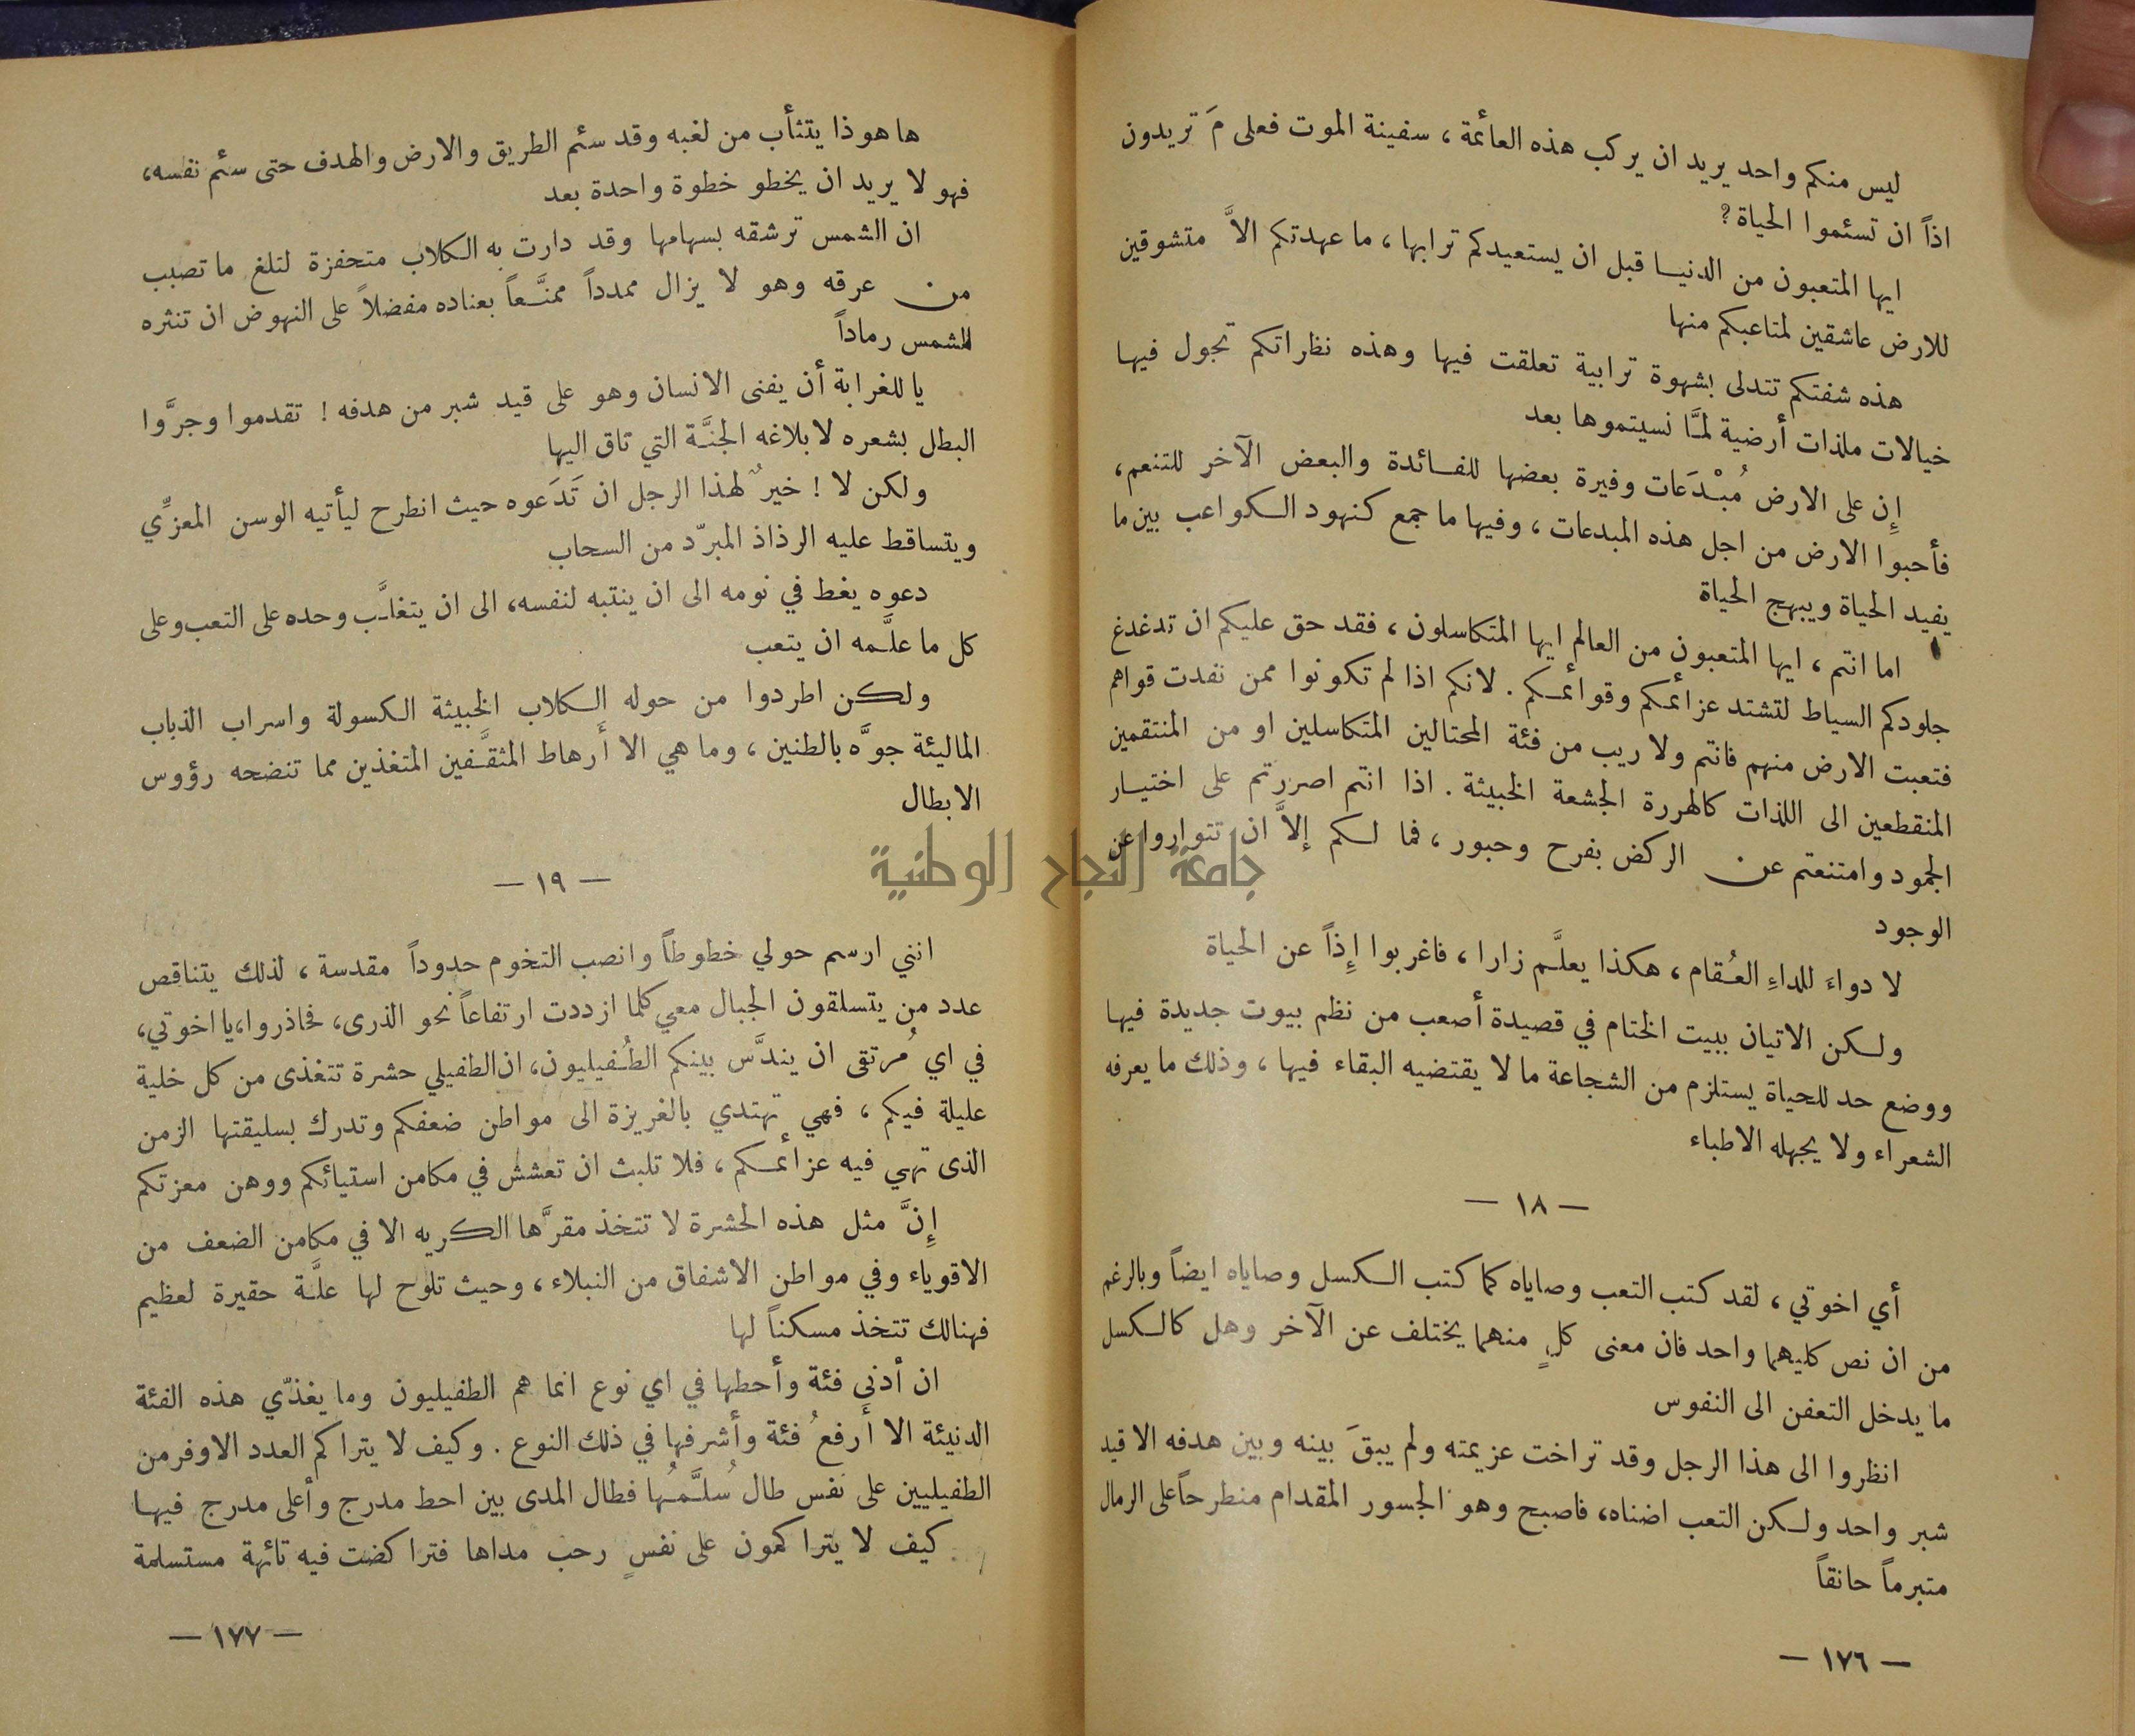 ليس منكم واحد يريد ان يركب هذه العائمة ، سفينة الموت فعلى مَ تريدون
اذاً ان تسئموا الحياة ؟
ايها المتعبون من الدنيا قبل ان يستعيدكم ترابها ، ما عهدتكم الاَّ متشوقين
للارض عاشقين لمتاعبكم منها
هذه شفتكم تتدلى بشهوة ترابية تعلقت فيها وهذه نظراتكم تجول فيها
خيالات ملذات أرضية لمَّا نسيتموها بعد
إِن على الارض مُبْدَعات وفيرة بعضها للفائدة والبعض الآخر للتنعم ،
فأحبوا الارض من اجل هذه المبدعات ، وفيها ما جمع كنهود الكواعب بين ما
يفيد الحياة ويبهج الحياة
اما انتم ، ايها المتعبون من العالم ايها المتكاسلون ، فقد حق عليكم ان تدغدغ
جلودكم السياط لتشتد عزائمكم وقوائمكم . لانكم اذا لم تكونوا ممن نفدت قواهم
فتعبت الارض منهم فانتم ولا ريب من فئة المحتالين المتكاسلين او من المنتقمين
المنقطعين الى اللذات كالهررة الجشعة الخبيثة . اذا انتم اصررتم على اختيار
الجمود وامتنعتم عن الركض بفرح وحبور ، فما لكم إلاَّ ان تتواروا عن
الوجود
لا دواءَ للداءِ العُقام ، هكذا يعلَّم زارا ، فاغربوا إِذاً عن الحياة
ولكن الاتيان ببيت الختام في قصيدة أصعب من نظم بيوت جديدة فيها
ووضع حد للحياة يستلزم من الشجاعة ما لا يقتضيه البقاء فيها ، وذلك ما يعرفه
الشعراء ولا يجهله الاطباء
— ١٨ —
أي اخوتي ، لقد كتب التعب وصاياه كما كتب الكسل وصاياه ايضاً وبالرغم
من ان نص كليهما واحد فان معنى كلٍ منهما يختلف عن الآخر وهل كالكسل
ما يدخل التعفن الى النفوس
انظروا الى هذا الرجل وقد تراخت عزيمته ولم يبقَ بينه وبين هدفه الا قيد
شبر واحد ولكن التعب اضناه، فاصبح وهو الجسور المقدام منطرحاً على الرمال
متبرماً حانقاً
— ١٧٦ —
ها هوذا يتثأب من لغبه وقد سئم الطريق والارض والهدف حتى سئم نفسه،
فهو لا يريد ان يخطو خطوة واحدة بعد
ان الشمس ترشقه بسهامها وقد دارت به الكلاب متحفزة لتلغ ما تصبب
من عرقه وهو لا يزال ممدداً ممنَّعاً بعناده مفضلاً على النهوض ان تنثره
الشمس رماداً
يا للغرابة أن يفنى الانسان وهو على قيد شبر من هدفه ! تقدموا وجرَّوا
البطل بشعره لابلاغه الجنَّة التي تاق اليها
ولكن لا ! خيرٌ لهذا الرجل ان تَدَعوه حيث انطرح ليأتيه الوسن المعزِّي
ويتساقط عليه الرذاذ المبرّد من السحاب
دعوه يغط في نومه الى ان ينتبه لنفسه، الى ان يتغلَّب وحده على التعب وعلى
كل ما علَّمه ان يتعب
ولكن اطردوا من حوله الكلاب الخبيثة الكسولة واسراب الذباب
الماليئة جوَّه بالطنين ، وما هي الا أَرهاط المثقَّفين المتغذين مما تنضحه رؤوس
الابطال
— ١٩ —
انني ارسم حولي خطوطاً وانصب التخوم حدوداً مقدسة ، لذلك يتناقص
عدد من يتسلقون الجبال معي كلما ازددت ارتفاعاً نحو الذرى، فحاذروا،يا اخوتي،
في اي مُرتقى ان يندَّس بينكم الطُفيليون، ان الطفيلي حشرة تتغذى من كل خلية
عليلة فيكم ، فهي تهتدي بالغريزة الى مواطن ضعفكم وتدرك بسليقتها الزمن
الذى تهي فيه عزائمكم ، فلا تلبث ان تعشش في مكامن استيائكم ووهن معزتكم
إِنَّ مثل هذه الحشرة لا تتخذ مقرَّها الكريه الا في مكامن الضعف من
الاقوياء وفي مواطن الاشفاق من النبلاء ، وحيث تلوح لها علَّة حقيرة لعظيم
فهنالك تتخذ مسكناً لها
ان أدنى فئة وأحطها في اي نوع انما هم الطفيليون وما يغذّي هذه الفئة
الدنيئة الا أَرفعُ فئة وأشرفها في ذلك النوع . وكيف لا يتراكم العدد الاوفر من
الطفيليين على نَفس طال سُلَّمُها فطال المدى بين احط مدرج وأعلى مدرج فيها
كيف لا يتراكمون على نفسٍ رحب مداها فتراكضت فيه تائهة مستسلمة
— ١٧٧ —
جامعة النجاح الوطنية